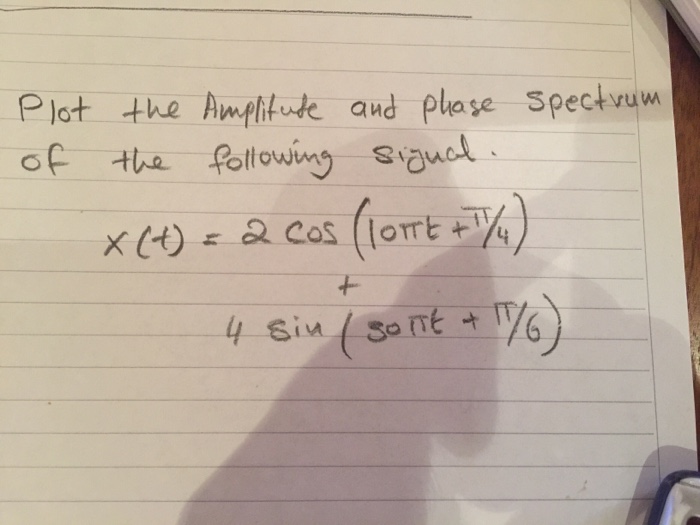 Plot the Amplitude and phase spectrum
of the following signal.
x(t) = 2 cos (10πt + π/4)
+
4 sin (30πt + π/6)